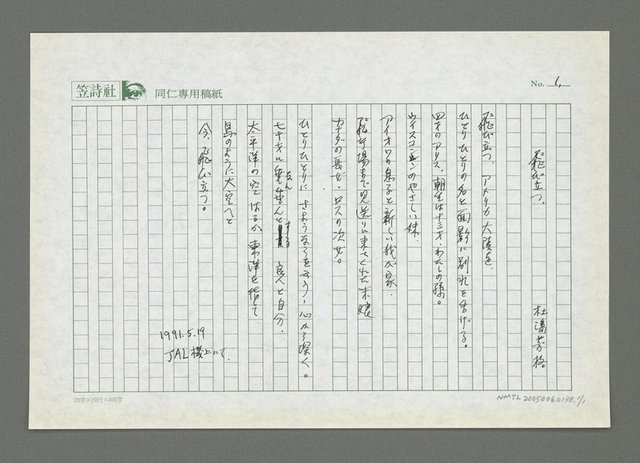 笠詩社
同仁専用稿紙
No. 6
飛び立つ。
杜潘芳格
飛び立つ、アメリカ大陸を、
ひとりひとりの名と面影に別れを告げる。
四才のアリス、朝生は十三才、わたしの孫。
ウイスコンシンのやさしい妹、
アイオワの息子と新しい我が家、
飛行場まで見送りに来てくれた末娘
カナダの長女、ロスの次女。
ひとりひとりに さようならを言う、心から深く。
七十才に
良人と自分、
太平洋の空はるか、東洋を指して
鳥のように大空へと
今、飛び立つ。
1991.5.19
JAL機上にて、
20字×20行=400字
NMTL20050060138.1/1